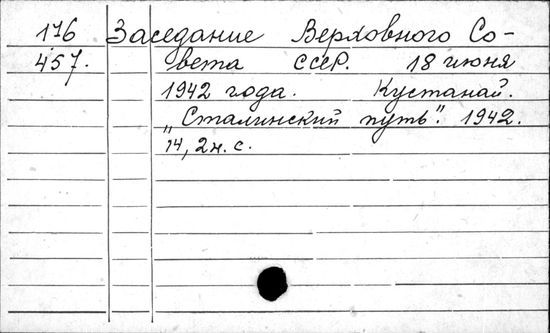 176 Заседание Верховного Со-
457. вета СССР. 18 июня
1942 года. Кустанай.
„Сталинский путь". 1942.
14, 2 н. с.